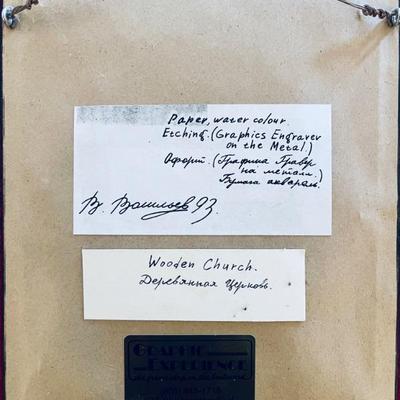 Paper, water colour.
Etching. (Graphics Engraver
on the Metal.)
Офорт. (Графика Гравюр
на металл.)
Бумага акварель.
В. Васильев 93.
Wooden Church.
Деревянная Церковь.
GRAPHIC
EXPERIENCE